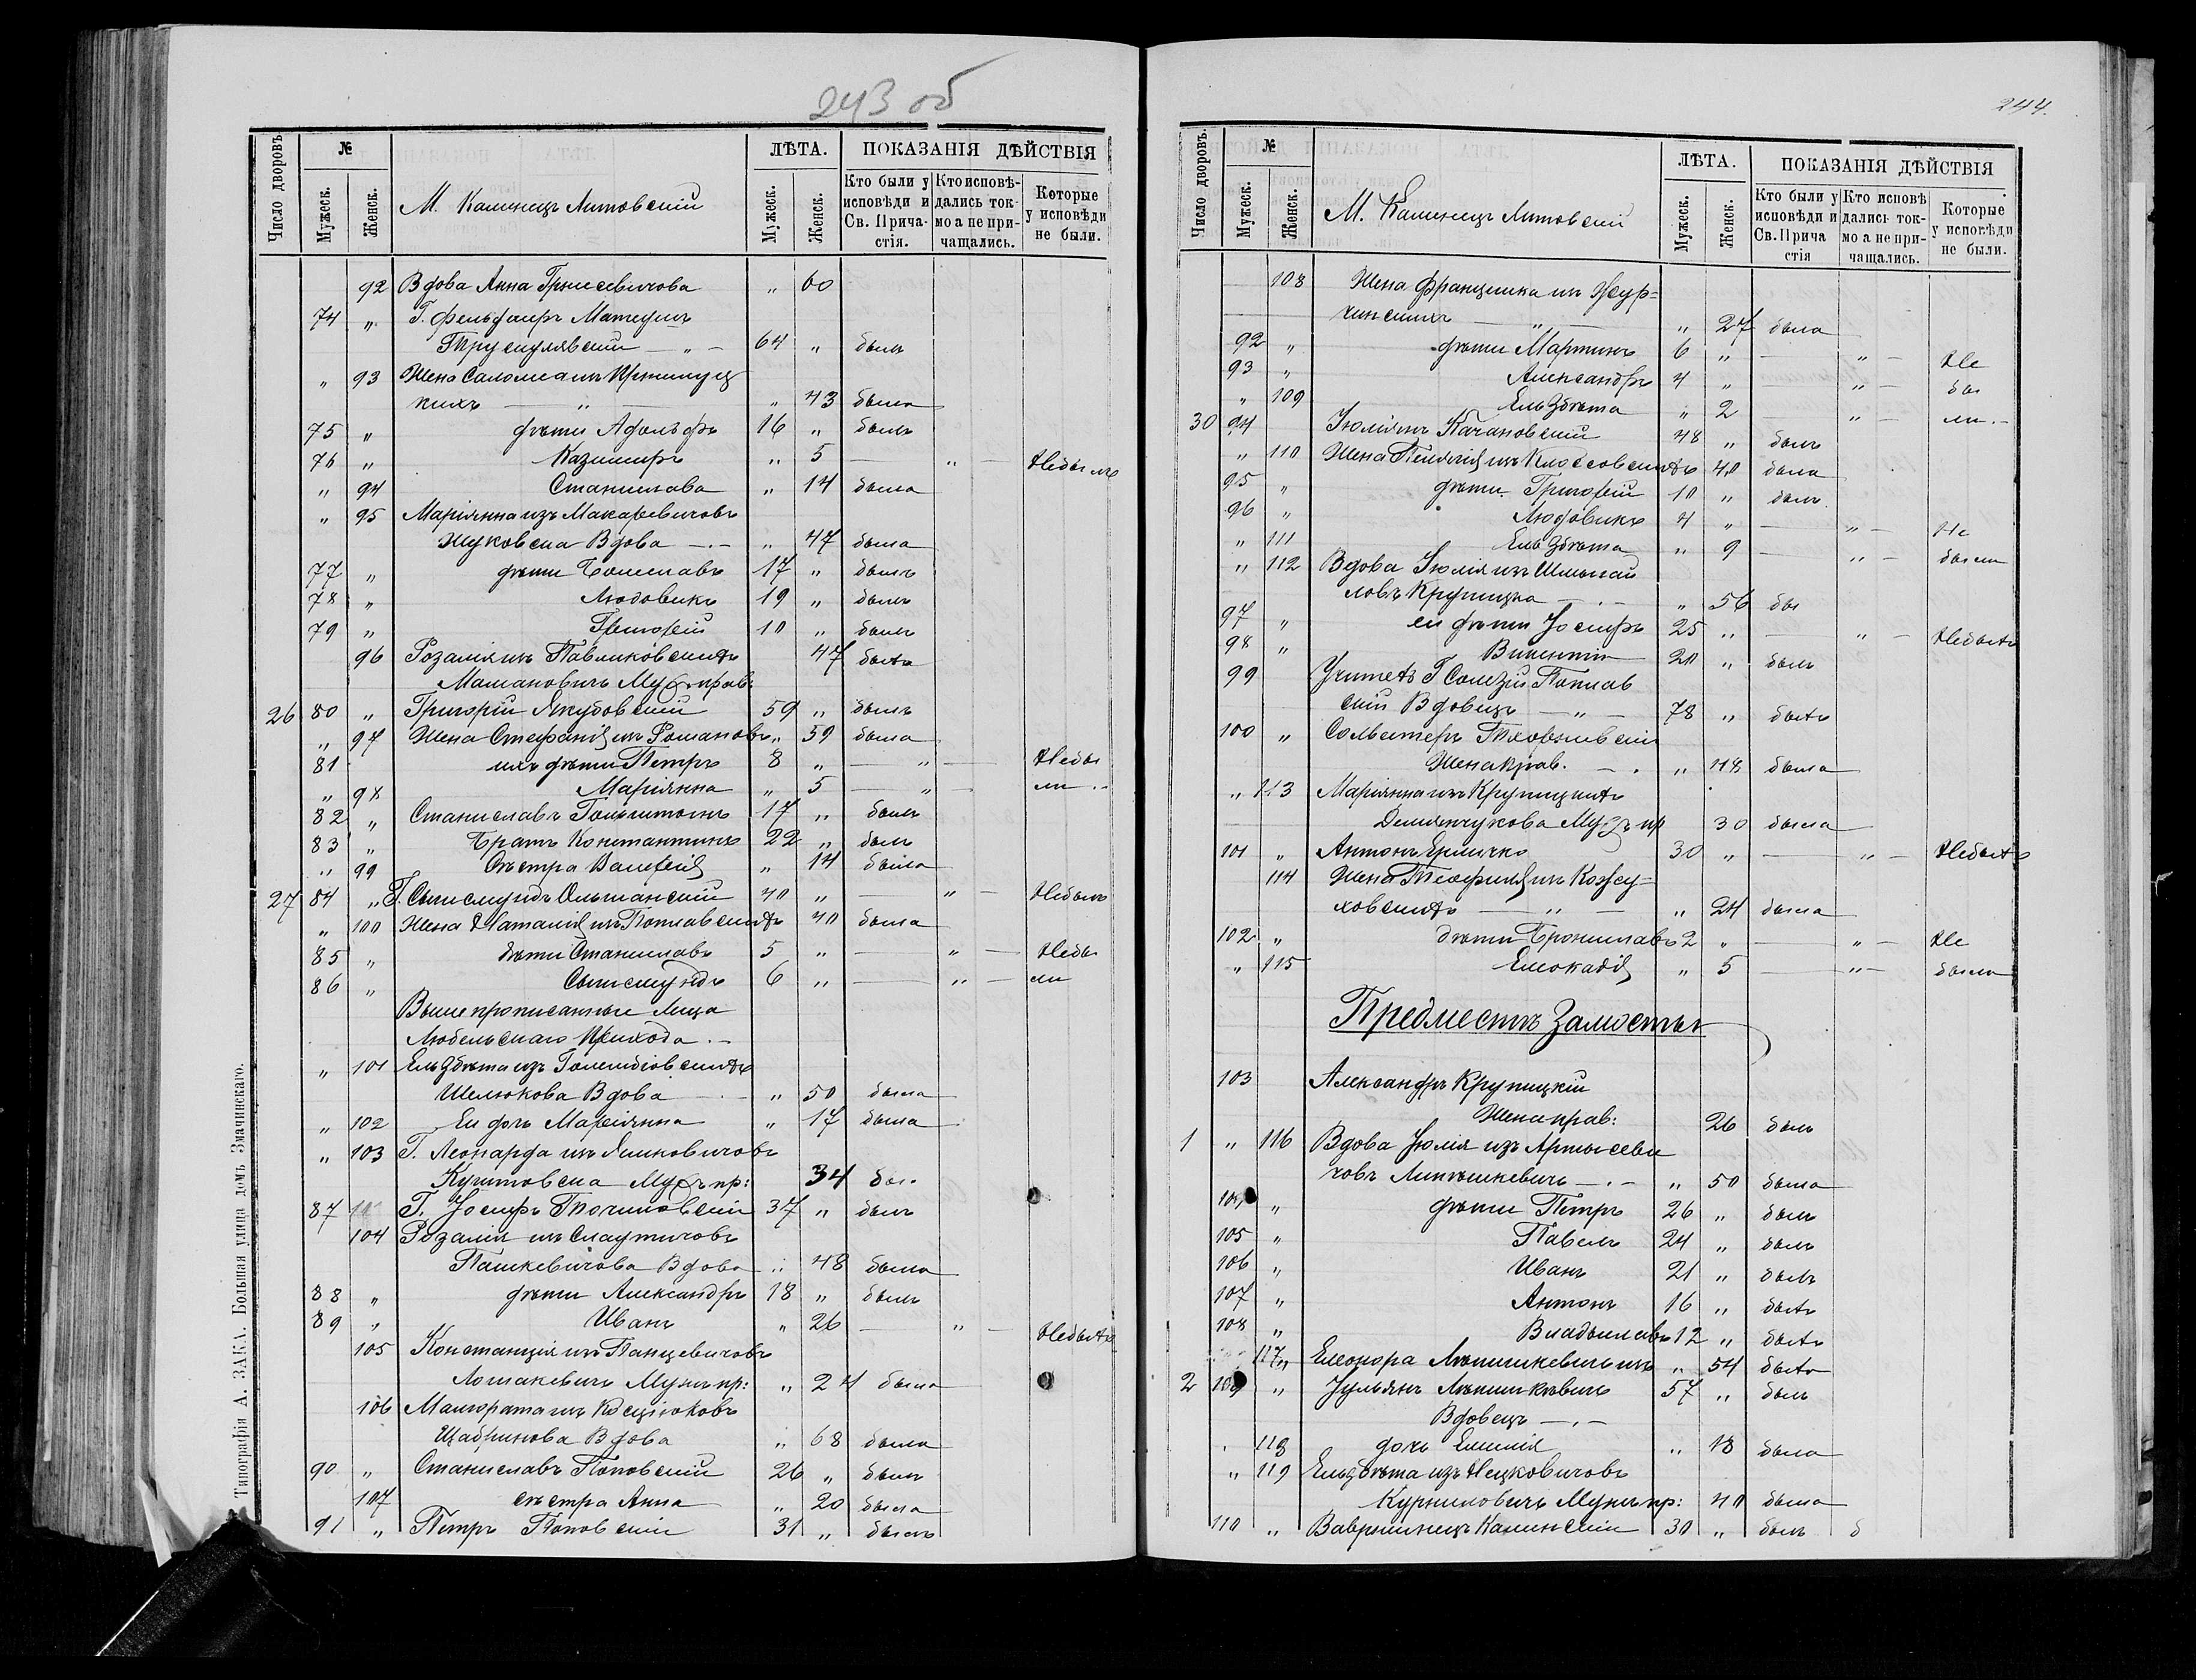 243 об
Число дворовъ
№
Мужеск.
Женск.
М. Каменецъ Литовскій
ЛѢТА.
Мужеск.
Женск.
ПОКАЗАНІЯ ДѢЙСТВІЯ
Кто были у исповѣди и Св. Прича-стія.
Кто исповѣ-дались ток-мо а не при-чащались.
Которые у исповѣди не были.
92 Вдова Анна " 60
74 " Г. Фельдшеръ
64 " былъ
" 93 Жена Саломея изъ
кихъ — " — " 43 была
75 " дѣти Адольфъ 16 " былъ
76 " Казимиръ " 5 — " — Небылъ
" 94 Станислава " 14 была
" 95 Маріянна изъ Макаревичовъ
Жуковска Вдова — " 47 была
77 " дѣти Болеславъ 17 " былъ
78 " Людовикъ 19 " былъ
79 " Григорій 10 " былъ
96 Розалія изъ Павликовскихъ 47 была
Малановичъ Мужъ прав.
26 80 " Григорій Якубовскій 59 " былъ
" 97 Жена Стефанія изъ Романовъ " 59 была
81 ихъ дѣти Петръ 8 " — " — Небы
" 98 Маріянна " 5 — " — ли
82 " Станиславъ 17 " былъ
83 " Братъ Константинъ 22 " былъ
" 99 Сестра Валерія " 14 была
27 84 " Г. Сигисмундъ Ольшанскій 40 " — " — Небылъ
" 100 Жена Наталія изъ Поплавскихъ 40 была
85 " дѣти Станиславъ 5 " — " — Небы
86 " Сигисмундъ 6 " — " — ли
Вышепрописанные лица
Любельскаго Прихода. —
" 101 Ельзбѣта изъ Голембіовскихъ
Шелюкова Вдова — " 50 была
" 102 Ея дочь Маріянна " 17 была
" 103 Г. Леонарда изъ Яцковичовъ
Мужъ пр: 34 была
87 Г. Іосифъ 37 " былъ
104 Розалія изъ
Пашкевичова Вдова " 48 была
88 " дѣти Александръ 18 " былъ
89 " Иванъ " 26 — " — Небылъ
105 Констанція изъ Панцевичовъ
Лошакевичъ Мужъ пр: " 24 была
106 Малгората изъ Косцюковъ
Вдова " 68 была
90 " Станиславъ Поповскій 26 " былъ
107 сестра Анна " 20 была
91 " Петръ Поповскій 31 " былъ
Типографія А. ЗАКА. Большая улица домъ Значинскаго.
244.
Число дворовъ
№
Мужеск.
Женск.
М. Каменецъ Литовскій
ЛѢТА.
Мужеск.
Женск.
ПОКАЗАНІЯ ДѢЙСТВІЯ
Кто были у исповѣди и Св. Прича стія
Кто исповѣ дались ток-мо а не при-чащались.
Которые у исповѣди не были.
108 Жена Францишка изъ Жур=
— " — " 27 была
92 " дѣти Мартинъ 6 " — " — Не
93 " Александръ 4 " — " — бы
" 109 Ельзбѣта " 2 — " — ли. —
30 94 Юліянъ Качановскій 48 " былъ
" 110 Жена изъ 40 была
95 " дѣти Григорій 10 " былъ
96 " Людовикъ 4 " — " — Не
" 111 Ельзбѣта " 9 — " — были
" 112 Вдова Юлія изъ
ловъ Крупицка — " 56 бы
97 " ея дѣти Іосифъ 25 " — " — Небылъ
98 " Викентій 20 " былъ
99 Учитель Г. Поплав
скій Вдовецъ — " — 78 " былъ
100 " Сольвестеръ
Жена прав. — " 48 была
" 113 Маріянна изъ Крупицкихъ
Демянчукова Мужъ пр 30 была
101 " Антонъ Ермичко 30 " — " — Небылъ
114 Жена Теофилія изъ Кожу=
ховскихъ — " — " 24 была
102 " дѣти Брониславъ 2 " — " — Не
" 115 Елюкадія " 5 — " — были
Предместъ Замостьы
103 Александръ Крупицкій
Жена прав: 26 былъ
1 " 116 Вдова Юлія изъ Артысеви
човъ — " 50 была
104 " дѣти Петръ 26 " былъ
105 " Павелъ 24 " былъ
106 " Иванъ 21 " былъ
107 " Антонъ 16 " былъ
108 " Владыславъ 12 " былъ
117 " Елеонора " 54 была
2 109 " Юльянъ 57 " былъ
Вдовецъ — " —
118 дочь Емилія " 18 была
" 119 Ельзбѣта изъ Яцковичовъ
Курниловичъ Мужъ пр: 40 была
110 " Каминскій 30 " былъ б